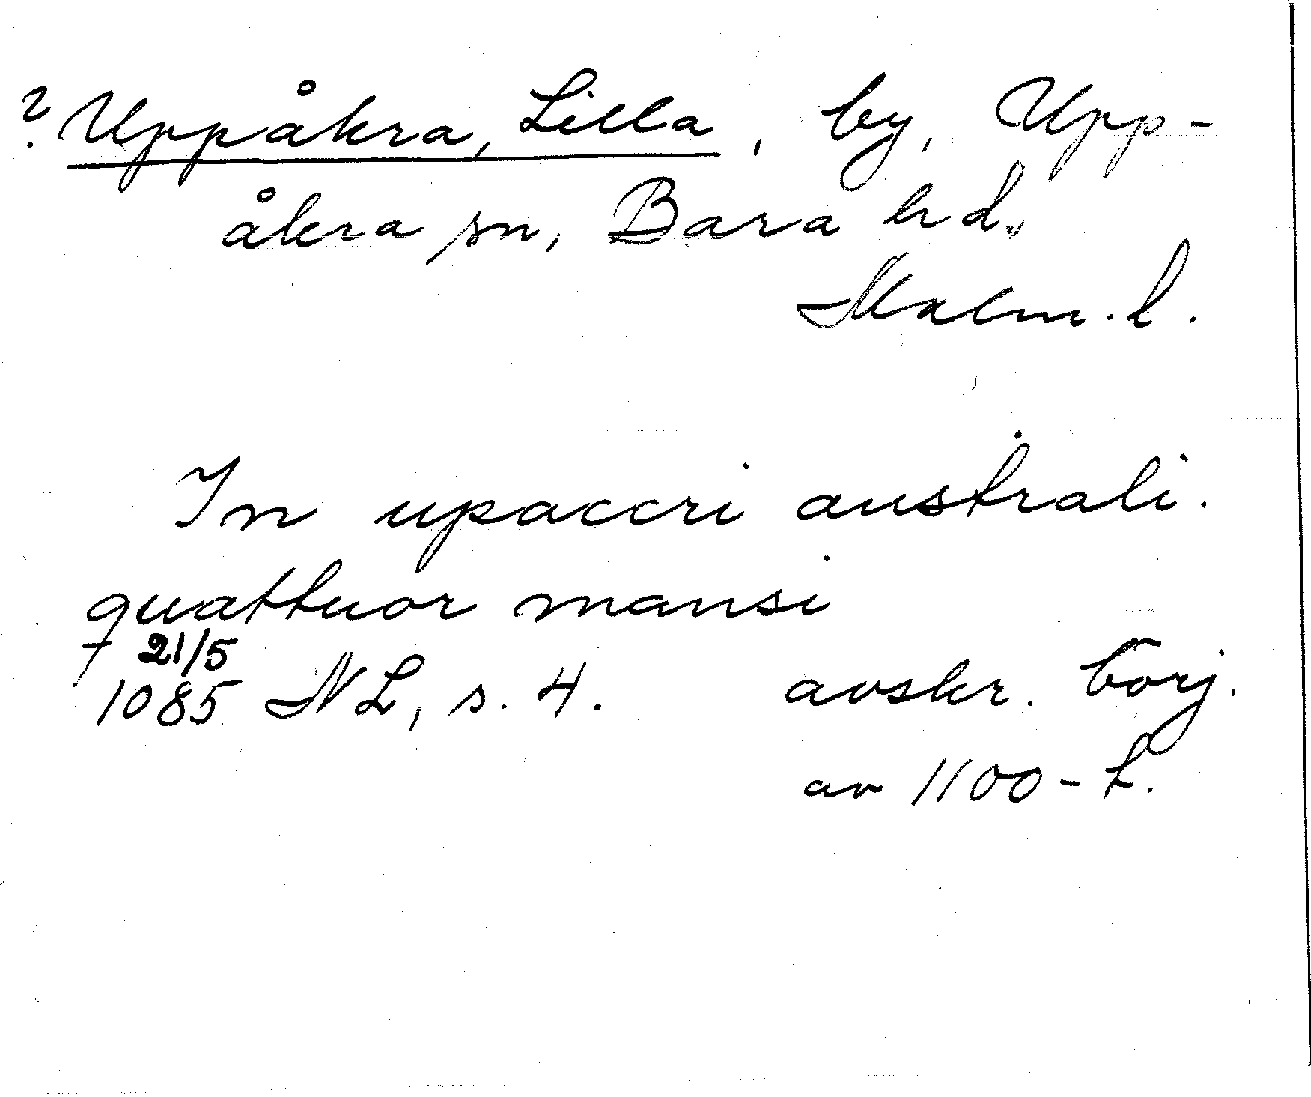 ? Uppåkra, Lilla, by, Upp-
åkra sn, Bara hd.
Malm. l.
In upaccri australi.
quattuor mansi
21/5
1085 NL, s. 4. avskr. börj.
av 1100-t.